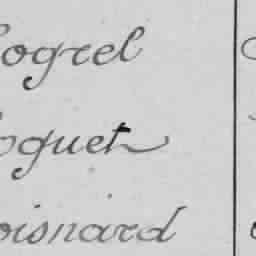 ogrel
oquet
oisnard